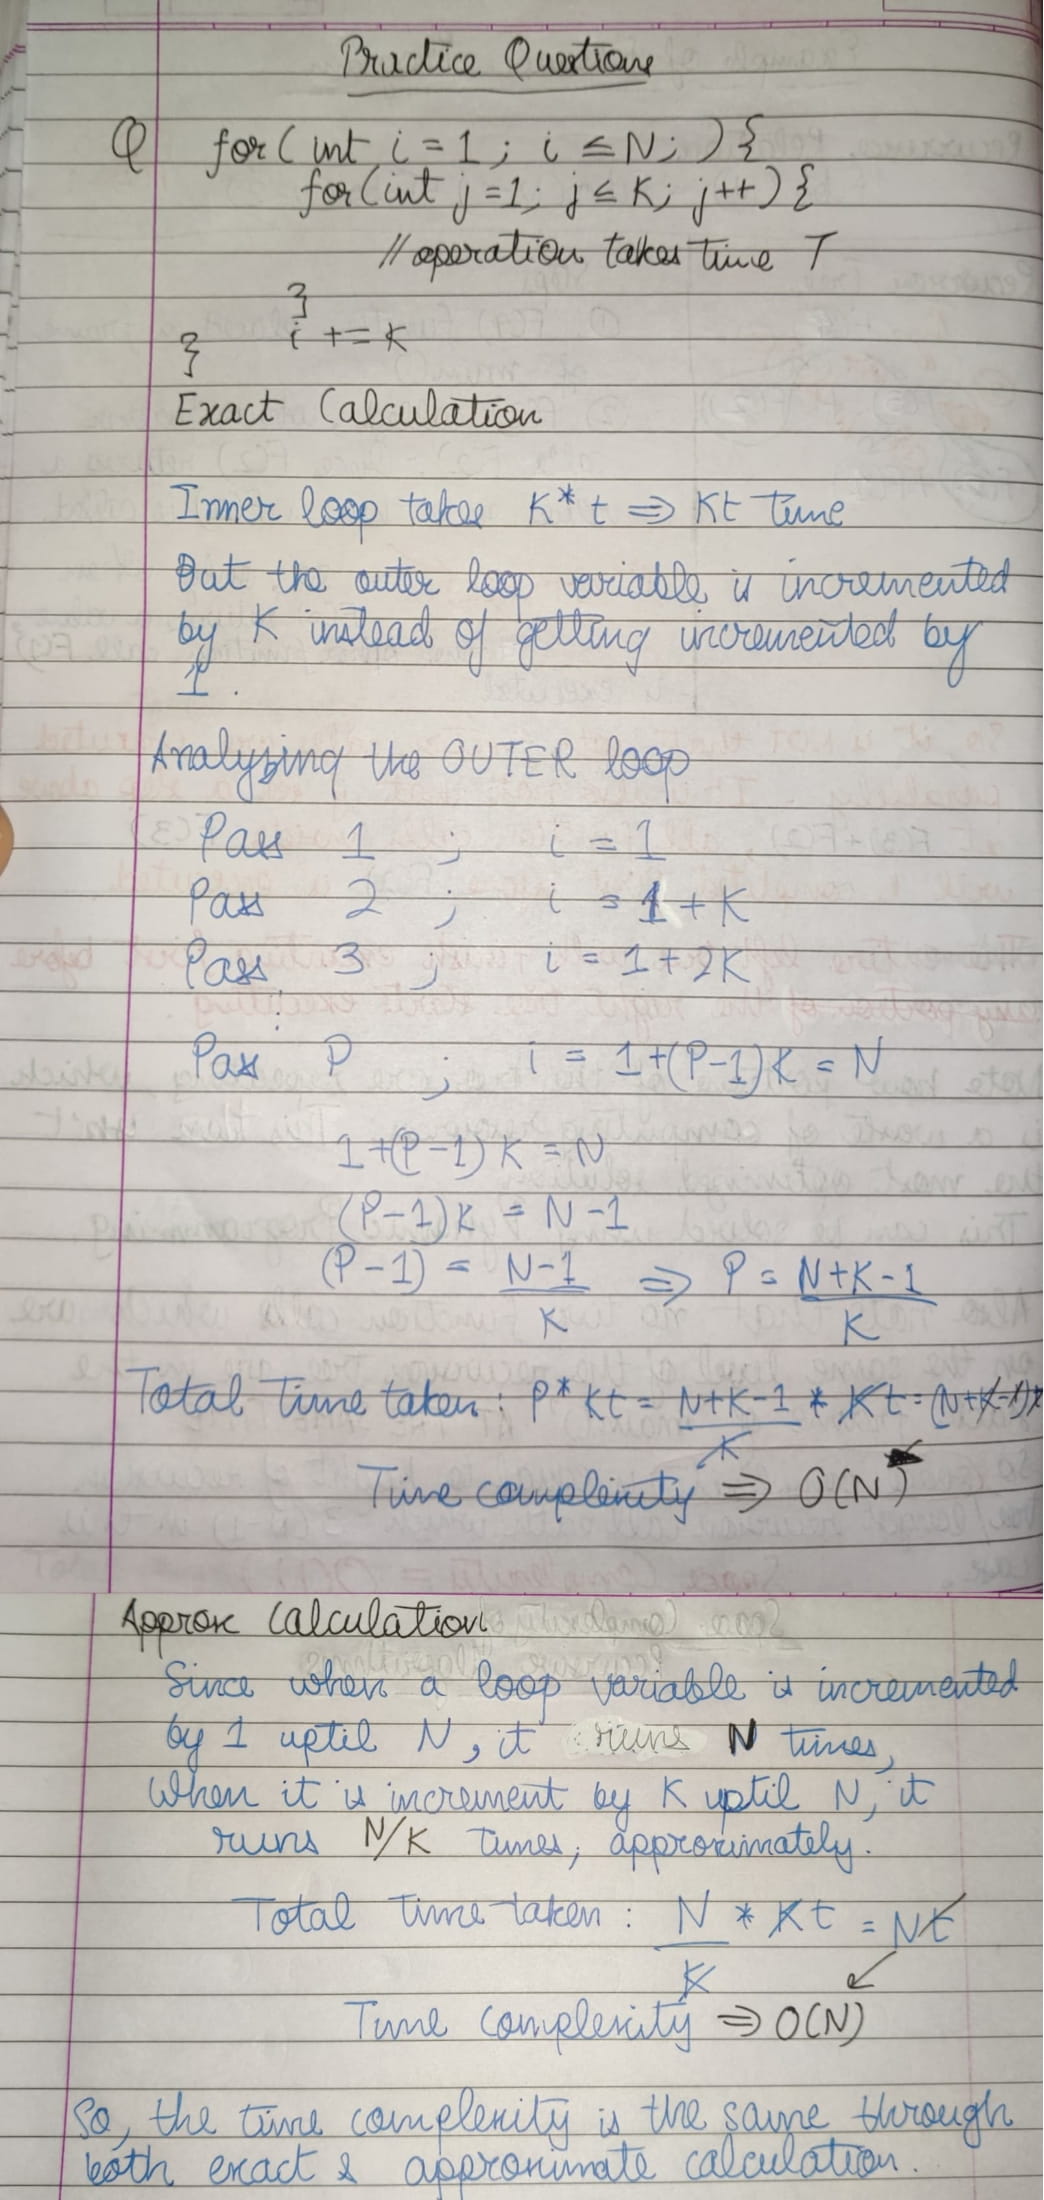 Practice Questions
Q for(int i = 1; i ≤ N; ) {
for(int j = 1; j ≤ K; j++) {
// operation takes time T
}
i += K
}
Exact Calculation
Inner loop takes K * t ⇒ Kt time
But the outer loop variable is incremented
by K instead of getting incremented by
1.
Analyzing the OUTER loop
Pass 1 ; i = 1
Pass 2 ; i = 1 + K
Pass 3 ; i = 1 + 2K
⋮
Pass P ; i = 1+(P-1)K = N
1+(P-1)K = N
(P-1)K = N-1
(P-1) = N-1/K ⇒ P = N+K-1/K
Total Time taken: P* Kt = N+K-1/K * Kt = (N+K-1)
Time complexity ⇒ O(N)
Approx Calculation
Since when a loop variable is incremented
by 1 uptil N, it runs N times,
when it is increment by K uptil N, it
runs N/K times, approximately.
Total time taken: N/K * Kt = Nt
Time complexity ⇒ O(N)
So, the time complexity is the same through
both exact & approximate calculation.